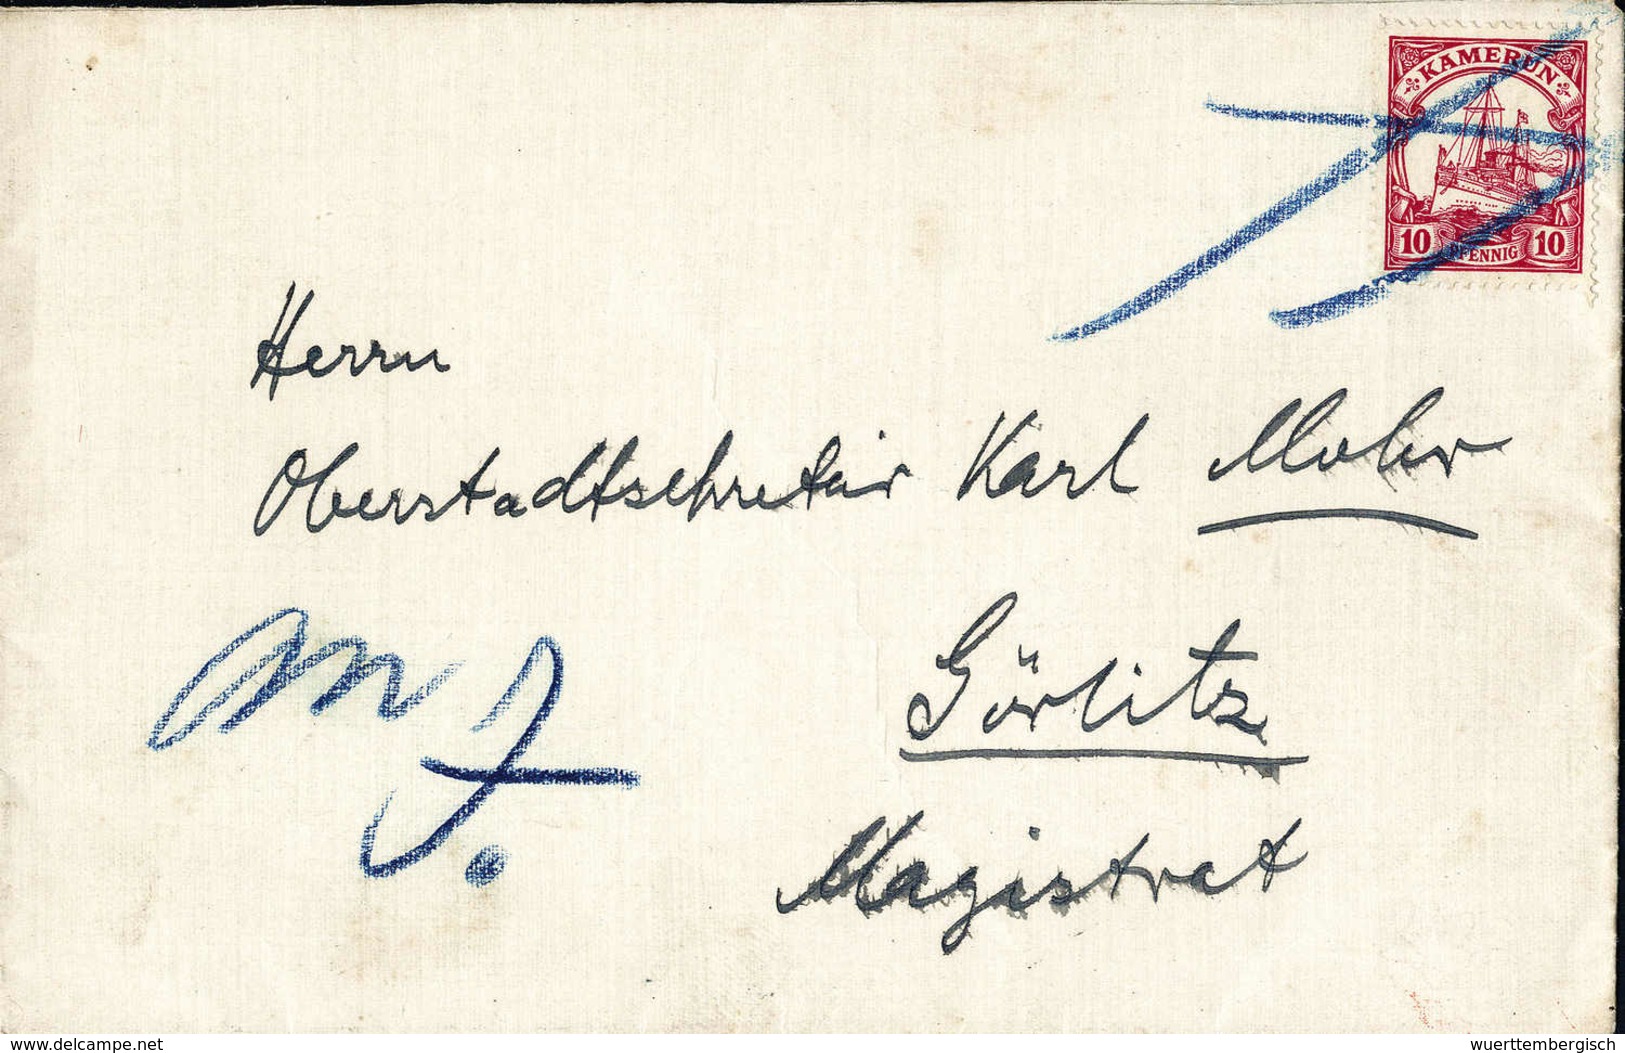 KAMERUN
10 PFENNIG 10
Herrn
Oberstadtsekretär Karl Mohr
Görlitz
Magistrat
www.delcampe.net
wuerttembergisch